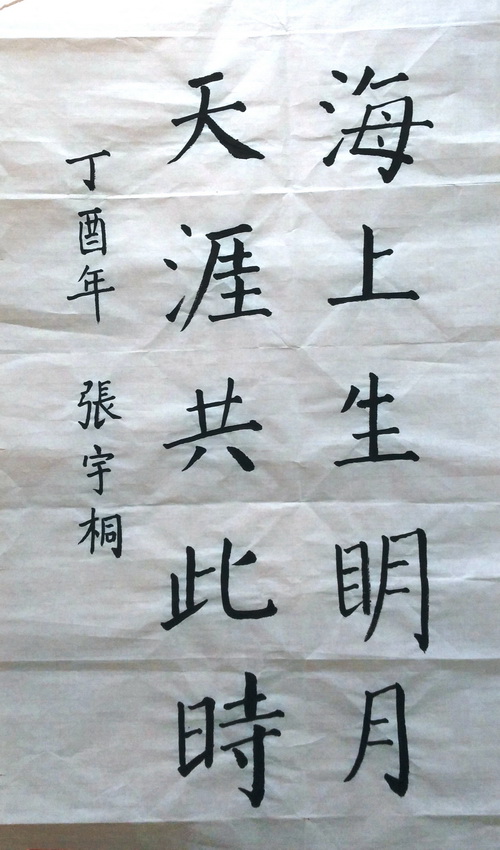 海上生明月
天涯共此時
丁酉年 張宇桐